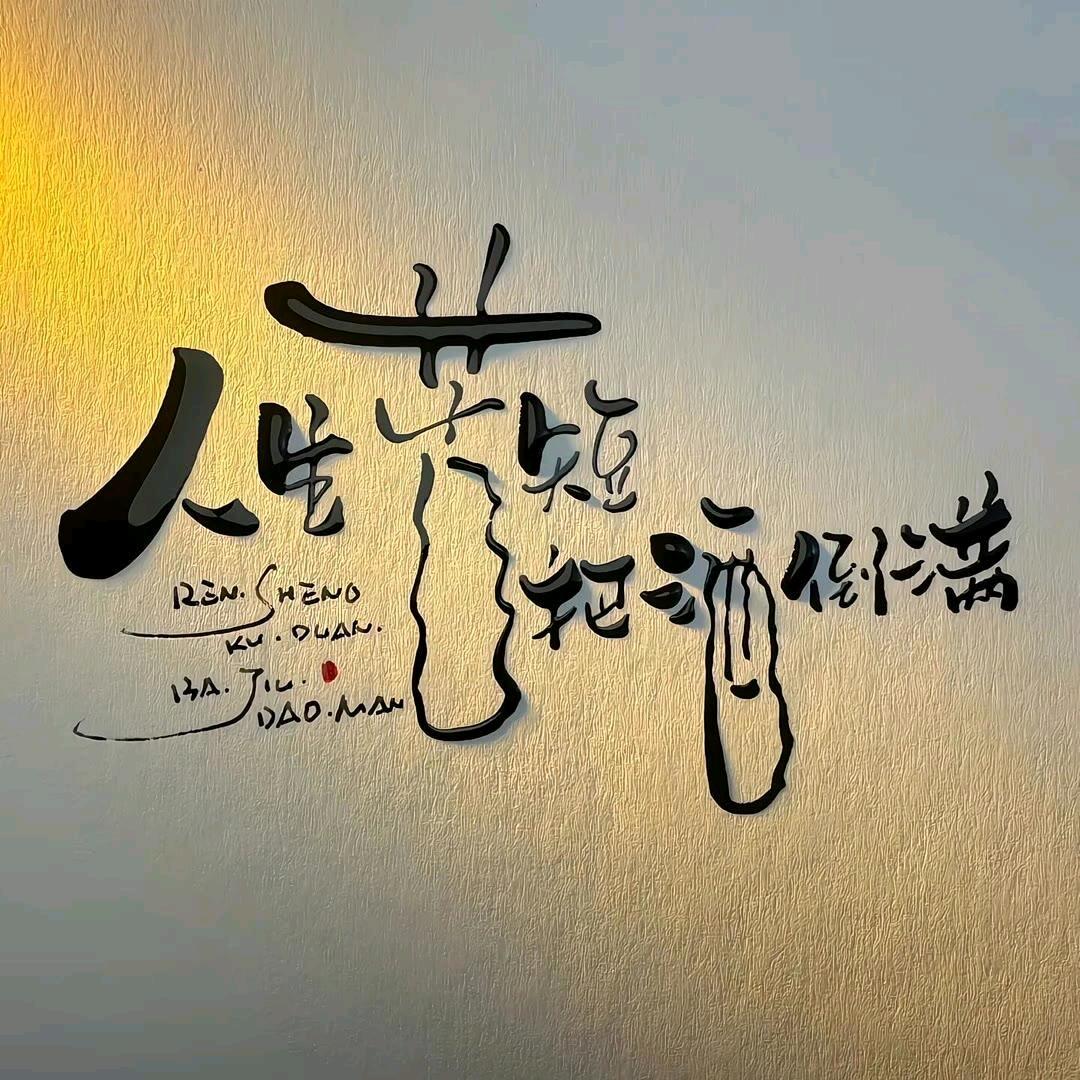 人生苦短
把酒倒满
REN.SHENG
KU.DUAN.
BA.JIU.
DAO.MAN